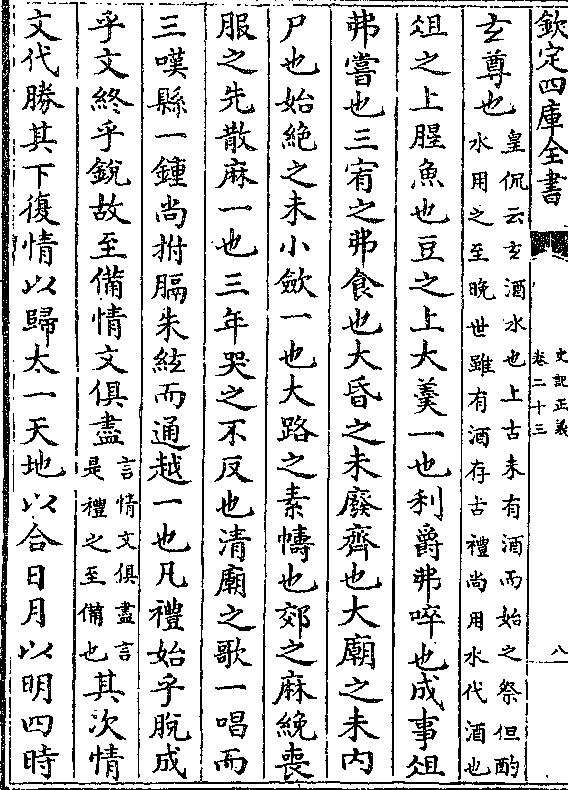 欽定四庫全書
史記正義
卷二十三
八
玄尊也
皇侃云玄酒水也上古未有酒而始之祭但酌
水用之至晚世雖有酒存古禮尚用水代酒也
俎之上腥魚也豆之上大羹一也利爵弗啐也成事俎
弗嘗也三宥之弗食也大昏之未廢齊也大廟之未內
尸也始絶之未小斂一也大路之素幬也郊之麻絻喪
服之先散麻一也三年哭之不反也清廟之歌一唱而
三嘆縣一鍾尚拊膈朱絃而通越一也凡禮始乎脫成
乎文終乎銳故至備情文俱盡
言情文俱盡言
是禮之至備也
其次情
文代勝其下復情以歸太一天地以合日月以明四時